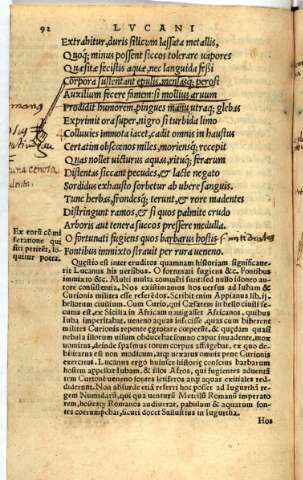 92 LVCANI
Extrahitur, duris silicum lassata metallis,
Quoq; minus possent siccos tolerare uapores
Quæsitæ fecistis aquæ, nec languida fessi
Corpora sustentant epulis, mensasq; perosi
Auxilium fecere famem: si mollius aruum
Prodidit humorem, pingues manus utraq; glebas
Exprimit ora super, nigro si turbida limo
Colluuies immota iacet, cadit omnis in haustus
Certatim obscœnos miles, moriensq; recepit
Quas nollet victurus aquas, rituq; ferarum
Distentas siccant pecudes, & lacte negato
Sordidus exhausto sorbetur ab ubere sanguis.
Tunc herbas, frondesq; terunt, & rore madentes
Distringunt ramos, & si quos palmite crudo
Arboris aut tenera succos pressere medulla.
O fortunati fugiens quos barbarus hostis
Fontibus immixto strauit per rura ueneno.
Ex eorũ cõmi
seratione que
siti perierẽt,
Quæstio est inter eruditos quamnam historiam significauerit
Lucanus his uersibus. O fortunati fugiens &c. Fontibus
immixto &c. Multi multa comulti
autore
consistentia. Nos existimamus hos uersus ad Iubam &
Curionis milites esse referẽdos. Scribit enim Appianus lib. ij.
bellorum ciuilium. Cum Curio, qui Cæsaris in bello ciuili secutus
est, ex Sicilia in African nauigasset Africanos, quibus
Iuba imperitabat, ueneno aquas infecisse, quas cum biberent
milites Curionis repente ægrotare corpisse, & quædam quasi
nebula illorum uisum obduceret
somno caput inuadente, mox
uomitus, deinde spasmus totum corpus affligebat, ex quo debilitatus
est non modicum, atq; ærarius omnis pene Curionis
exercitus. Lucanus ergo huiusce historiæ conscius barbarum
hostem appellat Iubam, & illos Afros, qui fugientes aduentum
Curionis ueneno fontes
aquas exitiales reddiderunt.
Non absurde etiã referri hoc posset ad Iugurthã regem
Numidarũ, qui qua uenturũ Metellũ Romanũ imperatorem,
Romanos audierat, pabulum & aquarum fontes
corrumpebat, sicuti docet Sallustius in Iugurtha.
Hos